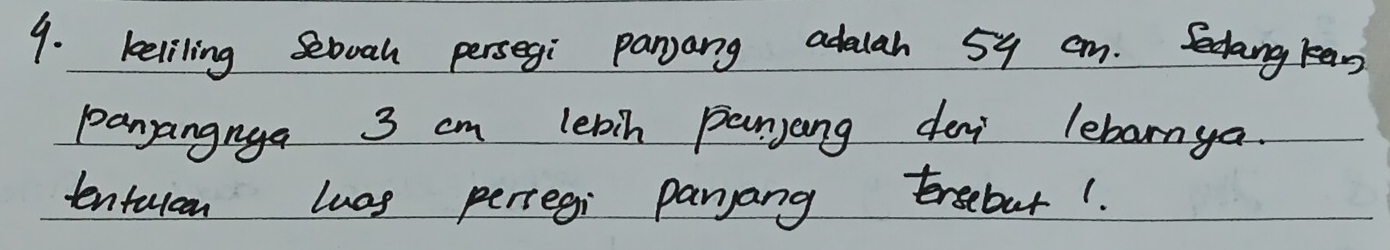 4. keliling sebuah persegi panjang adalah 54 cm. Sedangkan
panjangnya 3 cm lebih panjang dari lebarnya.
tentukan luas persegi panjang tersebut !.